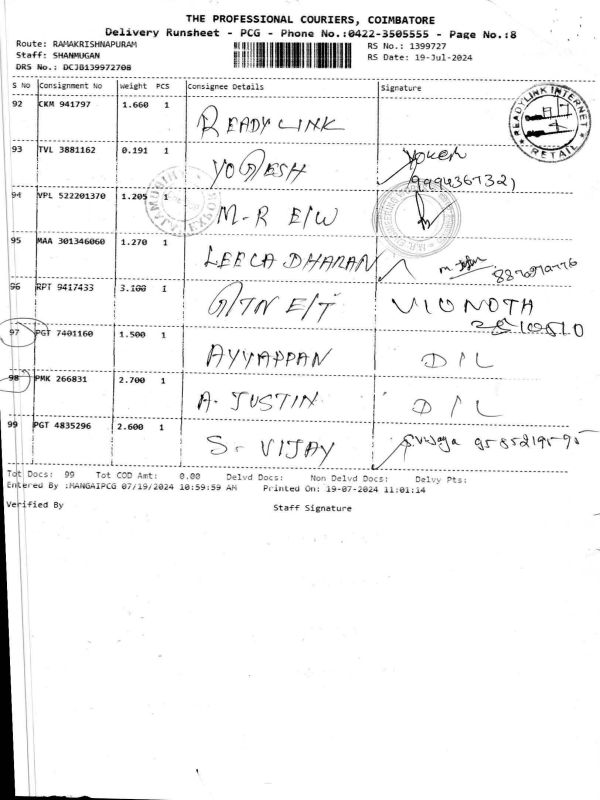 THE PROFESSIONAL COURIERS, COIMBATORE
Delivery Runsheet - PCG - Phone No.:0422-3505555 - Page No.:8
Route: RAMAKRISHNAPURAM
RS No.: 1399727
Staff: SHANMUGAN
RS Date: 19-Jul-2024
DRS No.: DCJB139972708
S No Consignment No Weight PCS Consignee Details Signature
92 CKM 941797 1.660 1 READY LINK
READYLINK INTERNET
RETAIL
93 TVL 3881162 0.191 1 YOGESH
94 VPL 522201370 1.205 1 M-R E/W
95 MAA 301346060 1.270 1 LEELA DHARAN
96 RPT 9417433 3.100 1 G/TN E/T
97 PGT 7401160 1.500 1 AYYAPPAN D/L
98 PMK 266831 2.700 1 A. JUSTIN D/L
99 PGT 4835296 2.600 1 S. VIJAY
Tot Docs: 99 Tot COD Amt: 0.00 Delvd Docs: Non Delvd Docs: Delvy Pts:
Entered By :MANGAIPCG 07/19/2024 10:59:59 AM Printed On: 19-07-2024 11:01:14
Verified By Staff Signature